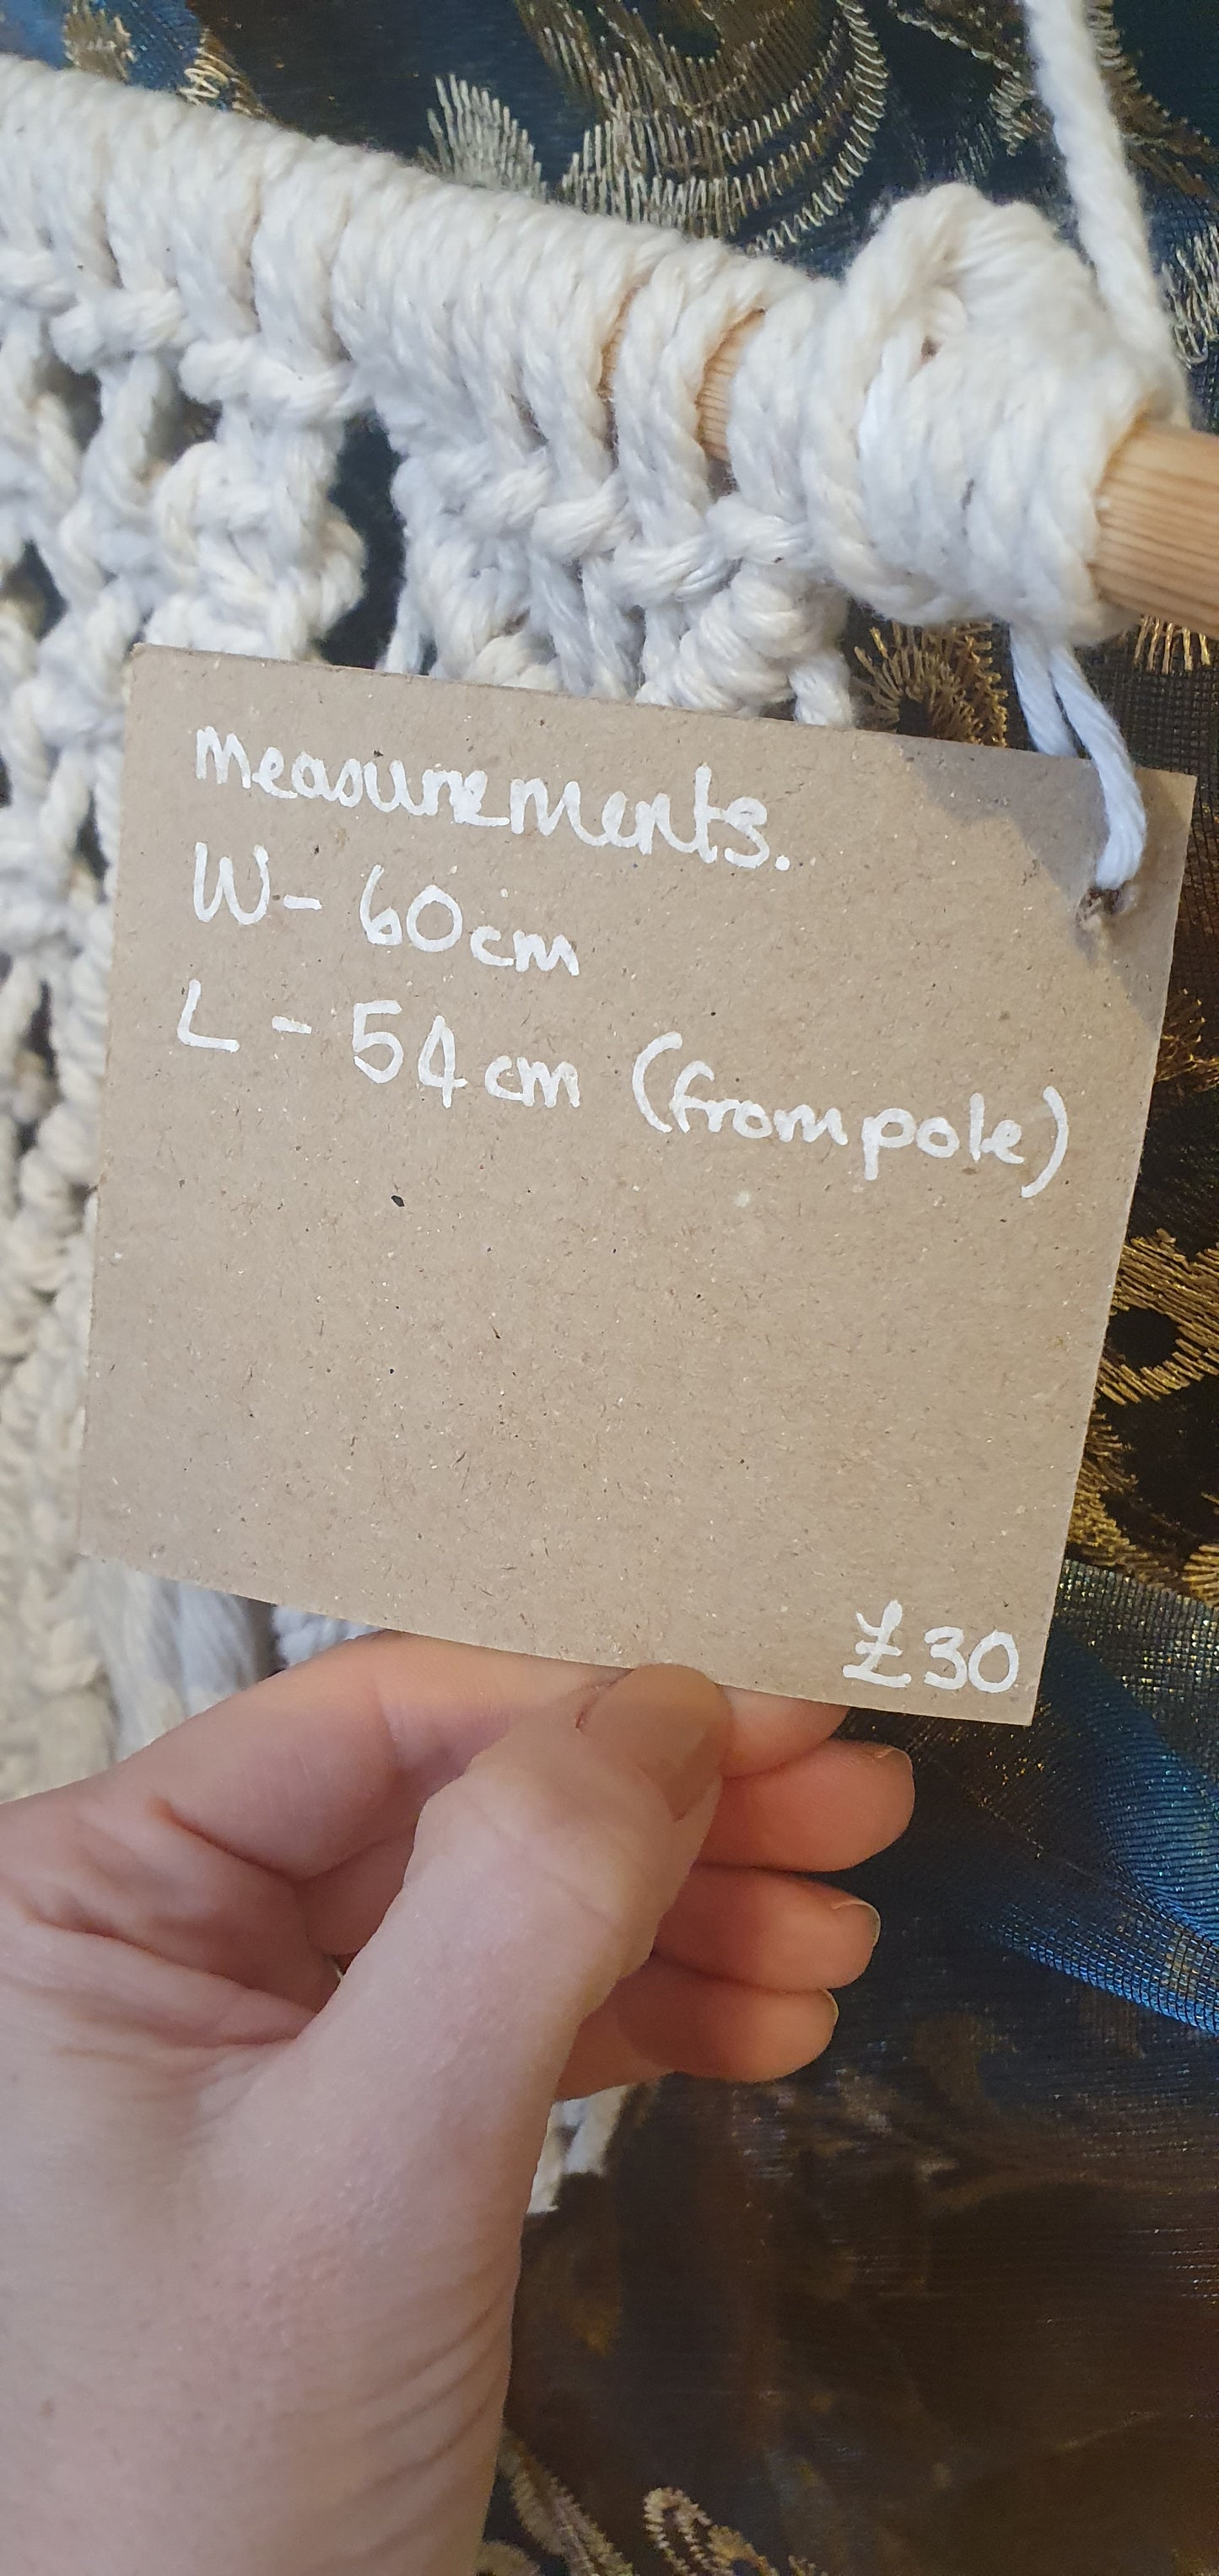 measurements.
W- 60cm
L - 54cm (from pole)
£30